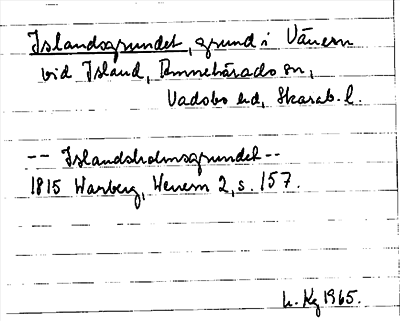 Islandsgrundet, grund i Vänern
vid Island, Amnehärads sn,
Vadsbo hd, Skarab. l.
-- Islandsholmsgrundet --
1815 Warberg, Wenern 2, s. 157.
1965.